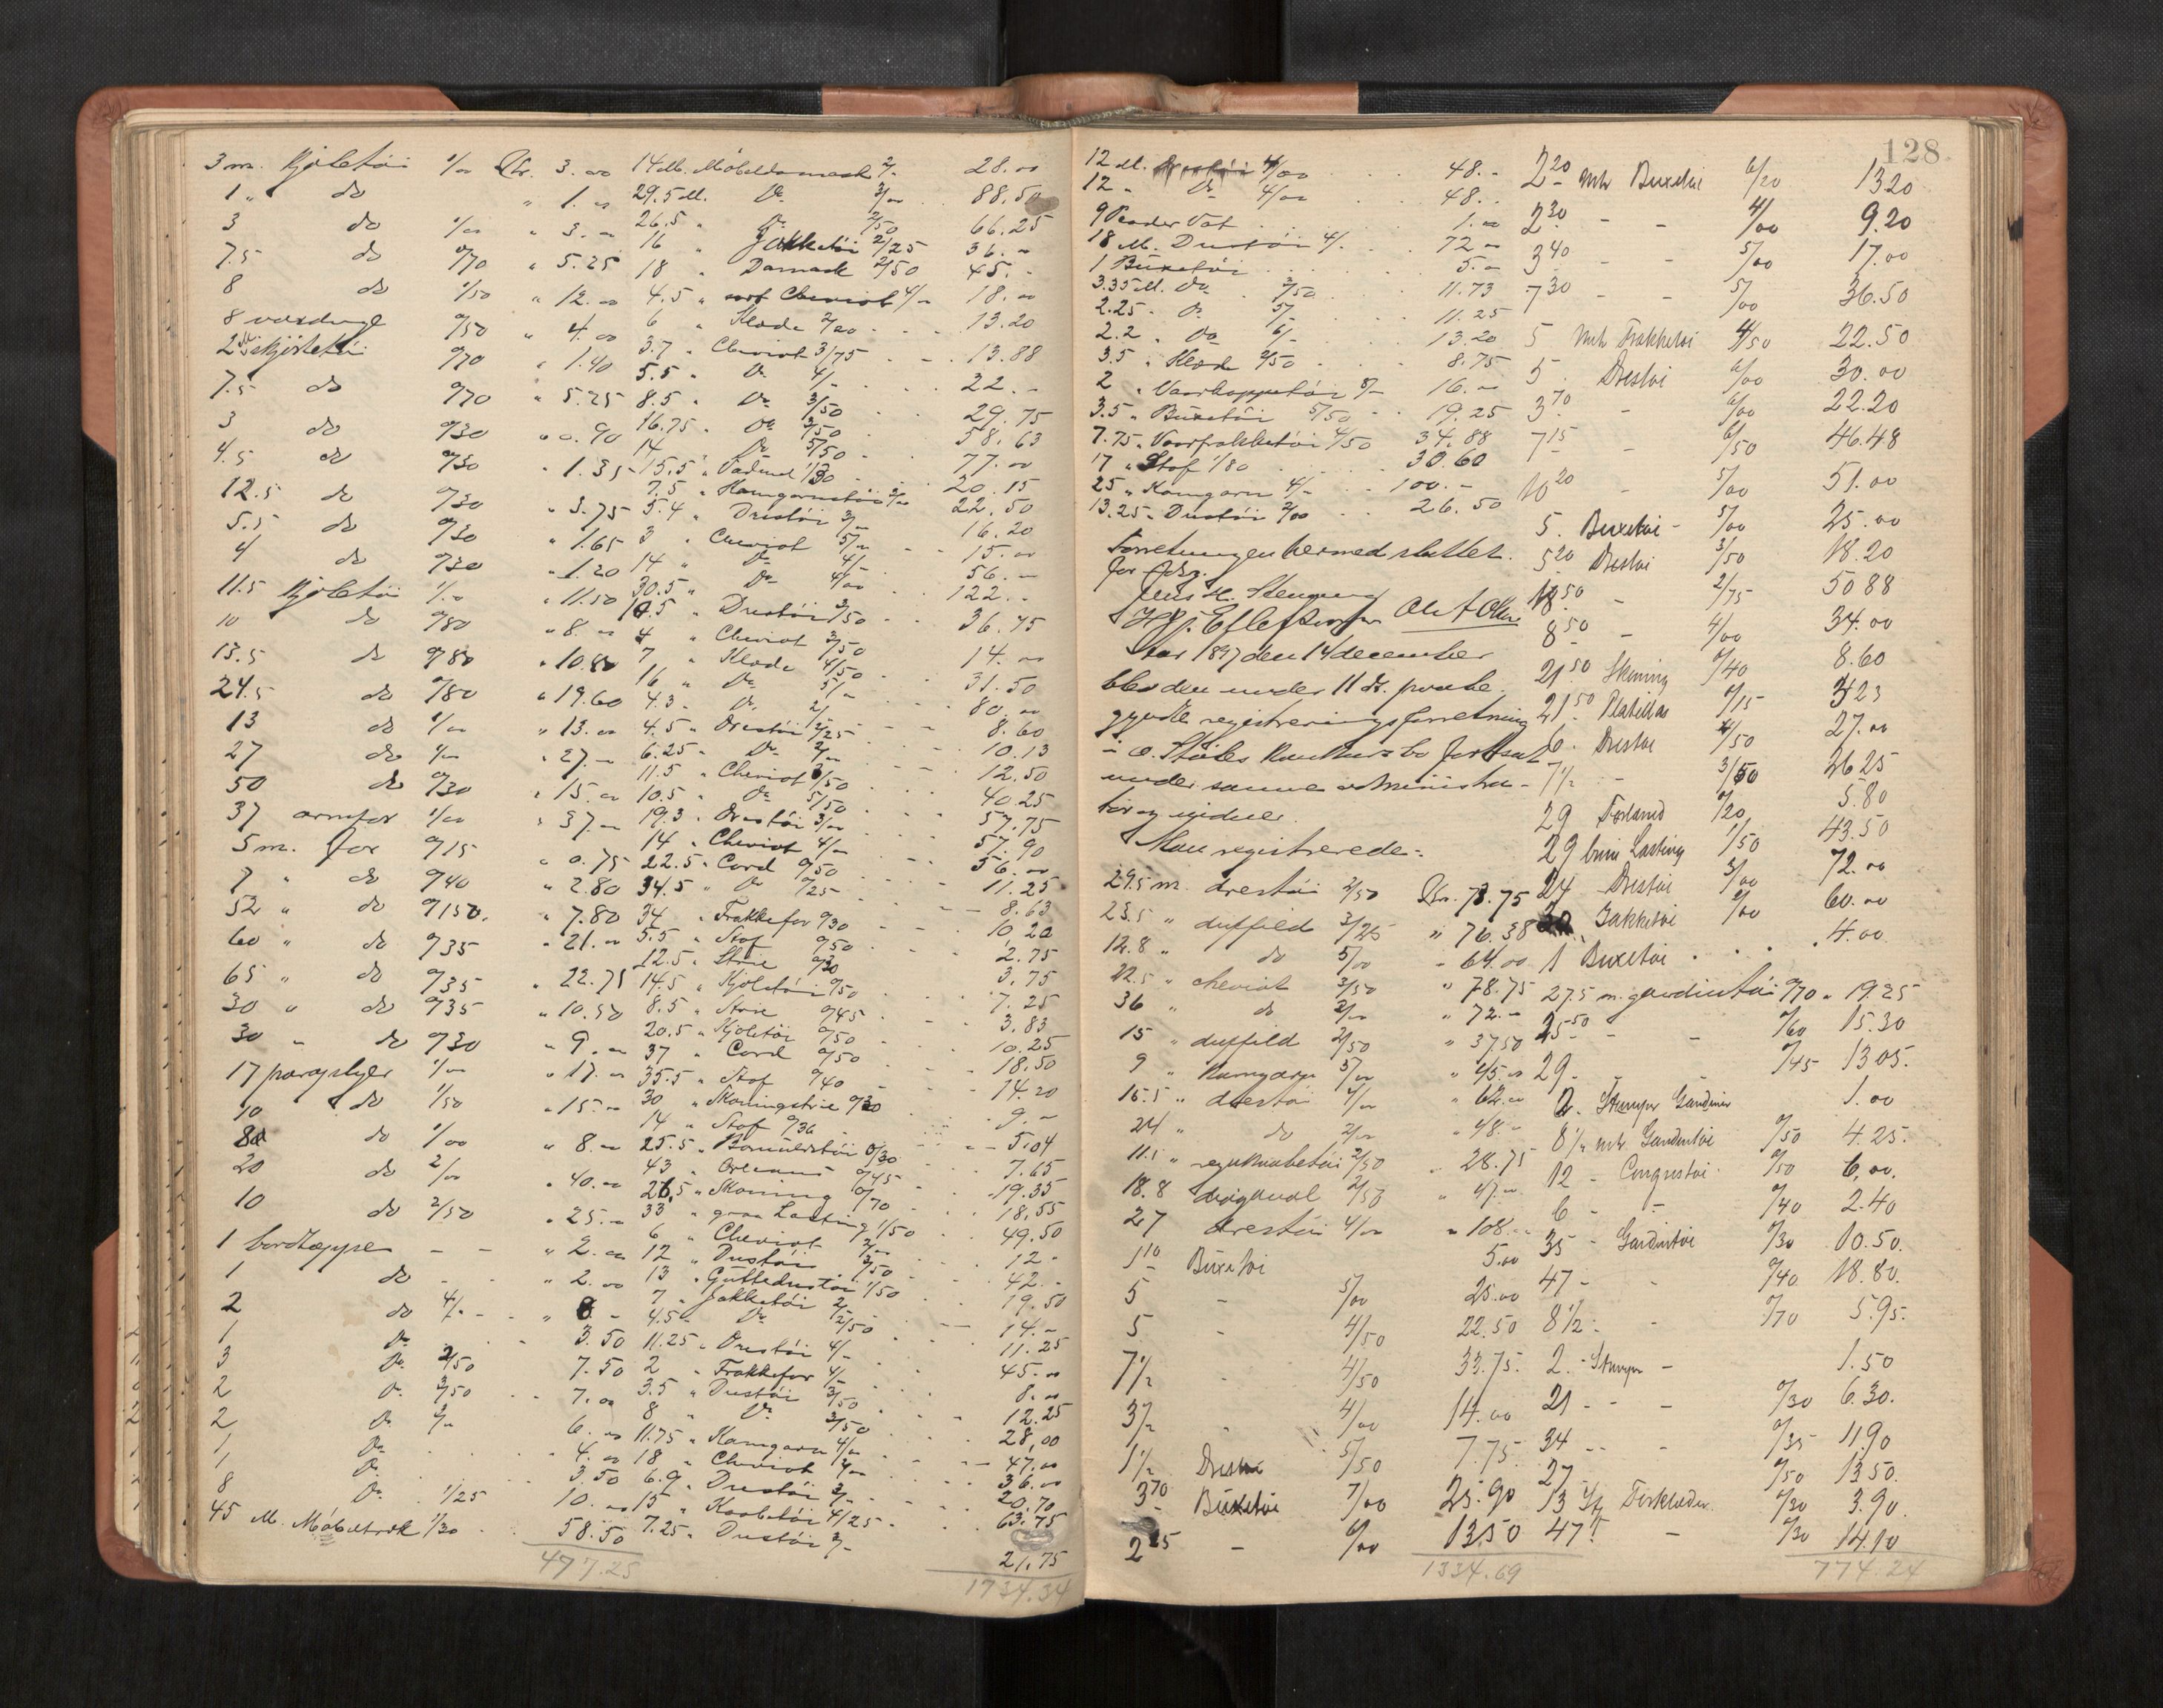 3 m. kjoletöi 1/00 Kr. 3.00
1 " do " 1.00
3 do 1/00 " 3.00
7.5 do 0/70 " 5.25
8 do 1/50 " 12.00
8 voxduge 0/50 " 4.00
2 skjörtetöi 0/70 " 1.40
7.5 do 0/70 " 5.25
3 do 0/30 " 0.90
4.5 do 0/30 " 1.35
12.5 do 0/30 " 3.75
5.5 do 0/30 " 1.65
4 do 0/30 " 1.20
11.5 kjoletöi 1/00 " 11.50
10 do 0/80 " 8.00
13.5 do 0/80 " 10.80
24.5 do 0/80 " 19.60
13 do 1/00 " 13.00
27 do 1/00 " 27.00
50 do 0/30 " 15.00
37 ormfor 1/00 " 37.00
5 m. for 0/15 " 0.75
7 " do 0/40 " 2.80
52 " do 0/15 " 7.80
60 " do 0/35 " 21.00
65 " do 0/35 " 22.75
30 " do 0/35 " 10.50
30 " do 0/30 " 9.00
17 paraplyer 1/00 " 17.00
10 do 1/50 " 15.00
8 do 1/00 " 8.00
20 do 2/00 " 40.00
10 do 2/50 " 25.00
1 bordtæppe - - " 2.00
1 do - - " 2.00
2 do 4/- - " 8.-
1 Do 3.50
3 Do 2/50 7.50
2 Do 3/50 7.00
2 Do 3/00 6.00
1 Do 4.00
1 Do 3.50
8 Do 1/25 10.00
45 M. Möbeltræk 1/30 58.50
477.25
14 M. Möbeldamask 2/- 28.00
29.5 M. Do 3/00 88.50
26.5 " Do 2/50 66.25
16 " Jakketöi 2/25 36.00
18 " Damask 2/50 45.-
4.5 " sort Cheviot 4/- 18.00
6 " Klæde 2/20 13.20
3.7 " Cheviot 3/75 13.88
5.5 " Do 4/- 22.-
8.5 " Do 3/50 29.75
16.75 " Do 3/50 58.63
14 " Do 5/50 77.00
15.5 " Vadmel 1/30 20.15
7.5 " Kamgarnstöi 3/00 22.50
5.4 " Drestöi 3/- 16.20
3 " Cheviot 5/00 15.00
14 " Do 4/- 56.-
30.5 " Do 4/00 122.-
10.5 " Drestöi 3/50 36.75
4 " Cheviot 3/50 14.00
7 " Klæde 4/50 31.50
16 " Do 5/- 80.00
4.3 " Do 2/- 8.60
4.5 " Drestöi 2/25 10.13
6.25 " Do 2/00 12.50
11.5 " Cheviot 3/50 40.25
10.5 " Do 5/50 57.75
19.3 " Drestöi 3/00 57.90
14 " Cheviot 4/- 56.00
22.5 " Cord 0/50 11.25
34.5 " Do 0/25 8.63
34 " Frakkefor 0/30 10.20
5.5 " Stof 0/50 2.75
12.5 " Strie 0/30 3.75
14.5 " Kjoletöi 0/50 7.25
8.5 " Strie 0/45 3.83
20.5 " Kjoletöi 0/50 10.25
37 " Cord 0/50 18.50
35.5 " Stof 0/40 14.20
30 " Skoningstrie 0/30 9.-
14 " Stof 0/36 5.04
25.5 " Bomuldstöi 0/30 7.65
43 " Orleans 0/45 19.35
26.5 " Skoning 0/70 18.55
33 " graa Lasting 1/50 49.50
6 " Cheviot 2/00 12.-
12 " Drestöi 3/50 42.-
13 " Guttedrestöi 1/50 19.50
7 " Jakketöi 2/- 14.-
4.5 " Do 2/50 11.25
11.25 " Drestöi 4/- 45.00
2 " Frakkefor 4/- 8.00
3.5 " Drestöi 3/50 12.25
8 " Do 3/50 28.00
11.75 " Kamgarn 4/00 47.00
18 " Cheviot 2/00 36.00
6.9 " Drestöi 3/- 20.70
15 " Kaabetöi 4/25 63.75
7.25 " Drestöi 3/- 21.75
1734.34
128.
12 M. Drestöi 4/00 48.-
12 " Do 4/00 48.-
9 Pander Vat 1.00
18 M. Drestöi 4/- 72.00
1 Buxetöi 5.00
3.35 M. Do 3/50 11.73
2.25 " Do 5/- 11.25
2.2 " Do 6/- 13.20
3.5 " Klæde 2/50 8.75
2 " Vaarkappetöi 8/- 16.00
3.5 " Buxetöi 5/50 19.25
7.75 " Vaarfrakketöi 4/50 34.88
17 " Stof 1/80 30.60
25 " Kamgarn 4/- 100.-
13.25 " Drestöi 2/00 26.50
Forretningen hermed sluttet.
Aar 1897 den 14 december
blev den under 11 ds. paabe-
gyndte registreringsforretning
i O. Stöles konkursbo fortsat
under samme administra-
tor og vidner.
Man registrerede:
29.5 m. drestöi 2/50 Kr. 73.75
23.5 " duffeld 3/25 " 76.38
12.8 " do 5/00 " 64.00
22.5 " cheviot 3/50 " 78.75
36 " do 2/00 " 72.-
15 " duffeld 2/50 " 37.50
9 " kamgarn 5/00 " 45.00
15.5 " drestöi 4/00 " 62.00
24 " do 2/00 " 48.-
11.5 " regnkaabetöi 2/50 " 28.75
18.8 diagonal 2/50 " 47.00
27 drestöi 4/00 " 108.-
1 10 Buxetöi 5.00
5 - 5/00 25.00
5 - 4/50 22.50
7½ - 4/50 33.75
3½ " 4/00 14.00
1½ Drestöi 5/50 7.75
3 70 Buxetöi 7/00 25.90
2 25 - 6/00 13.50
1334.69
2 20 mtr Buxetöi 6/00 13.20
2 30 - - 4/00 9.20
3 40 - - 5/00 17.00
7 30 - - 5/00 36.50
5 mtr Frakketöi 4/50 22.50
5 - Drestöi 6/00 30.00
3 70 - 6/00 22.20
7 15 - 6/50 46.48
10 20 - 5/00 51.00
5 - Buxetöi - 5/00 25.00
5 20 Drestöi 3/50 18.20
18 50 - 2/75 50.88
8 50 - 4/00 34.00
21 50 Skoning 0/40 8.60
21 50 Platillas 0/15 3.23
6 - Drestöi 4/50 27.00
7½ - 3/50 26.25
29 Forlærred 0/20 5.80
29 brun Lasting 1/50 43.50
24 - Drestöi 3/00 72.00
Jakketöi 2/00 60.00
1 Buxetöi 4.00
27.5 m. gardintöi 0/70 " 19.25
25 50 - - 0/60 15.30
29 - - 0/45 13.05
2 - Stumper Gardiner 1.00
8½ mtr Gardintöi 0/50 4.25
12 - Congrestöi 0/50 6.00
6 - - 0/40 2.40
35 - Gardintöi 0/30 10.50
47 - - 0/40 18.80
8½ - - 0/70 5.95
2 - Stumper - 1.50
21 - - 0/30 6.30
34 - - 0/35 11.90
27 - - 0/50 13.50
13 Stk Forklæder 0/30 3.90
47 - 0/30 14.10
774.24